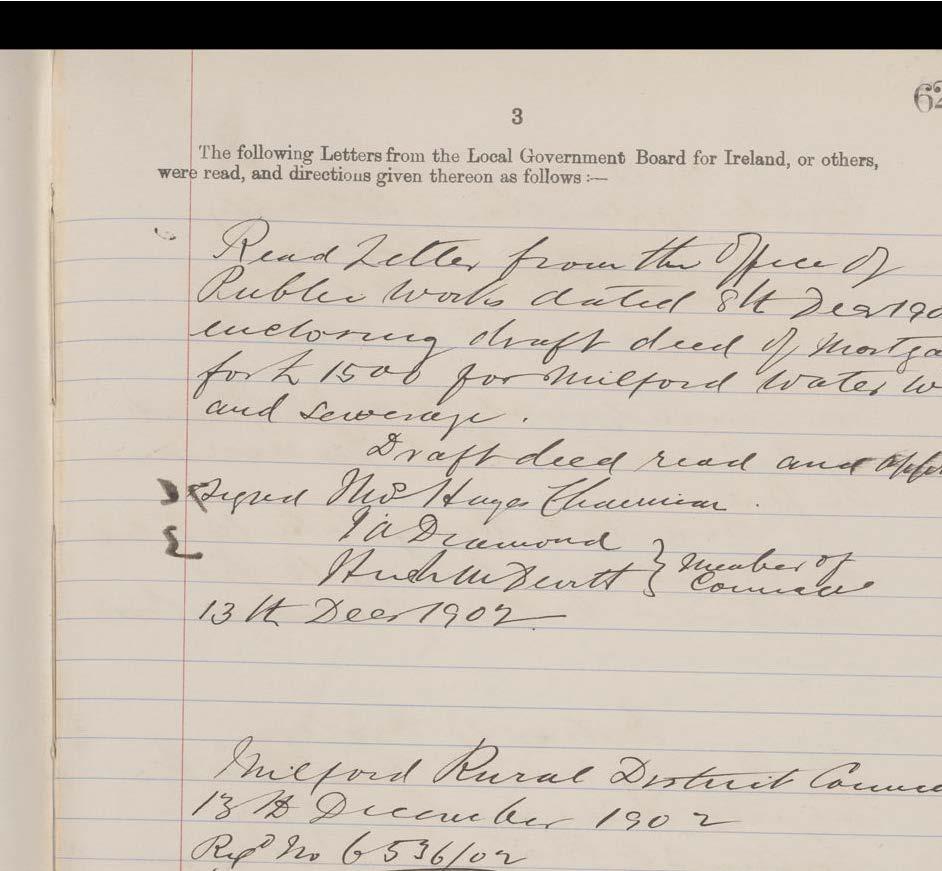 62
3
The following Letters from the Local Government Board for Ireland, or others,
were read, and directions given thereon as follows :—
Read Letter from the Office of
Public Works dated 8th Decr 190
enclosing draft deed of Mortga
for £ 1500 for Milford Water W
and sewerage.
Draft deed read and appr
Signed Thos Hayes Chairman.
Diamond
Hugh McDevitt } Member of
Council
13th Decr 1902
Milford Rural District Counc
13th December 1902
No 6536/02